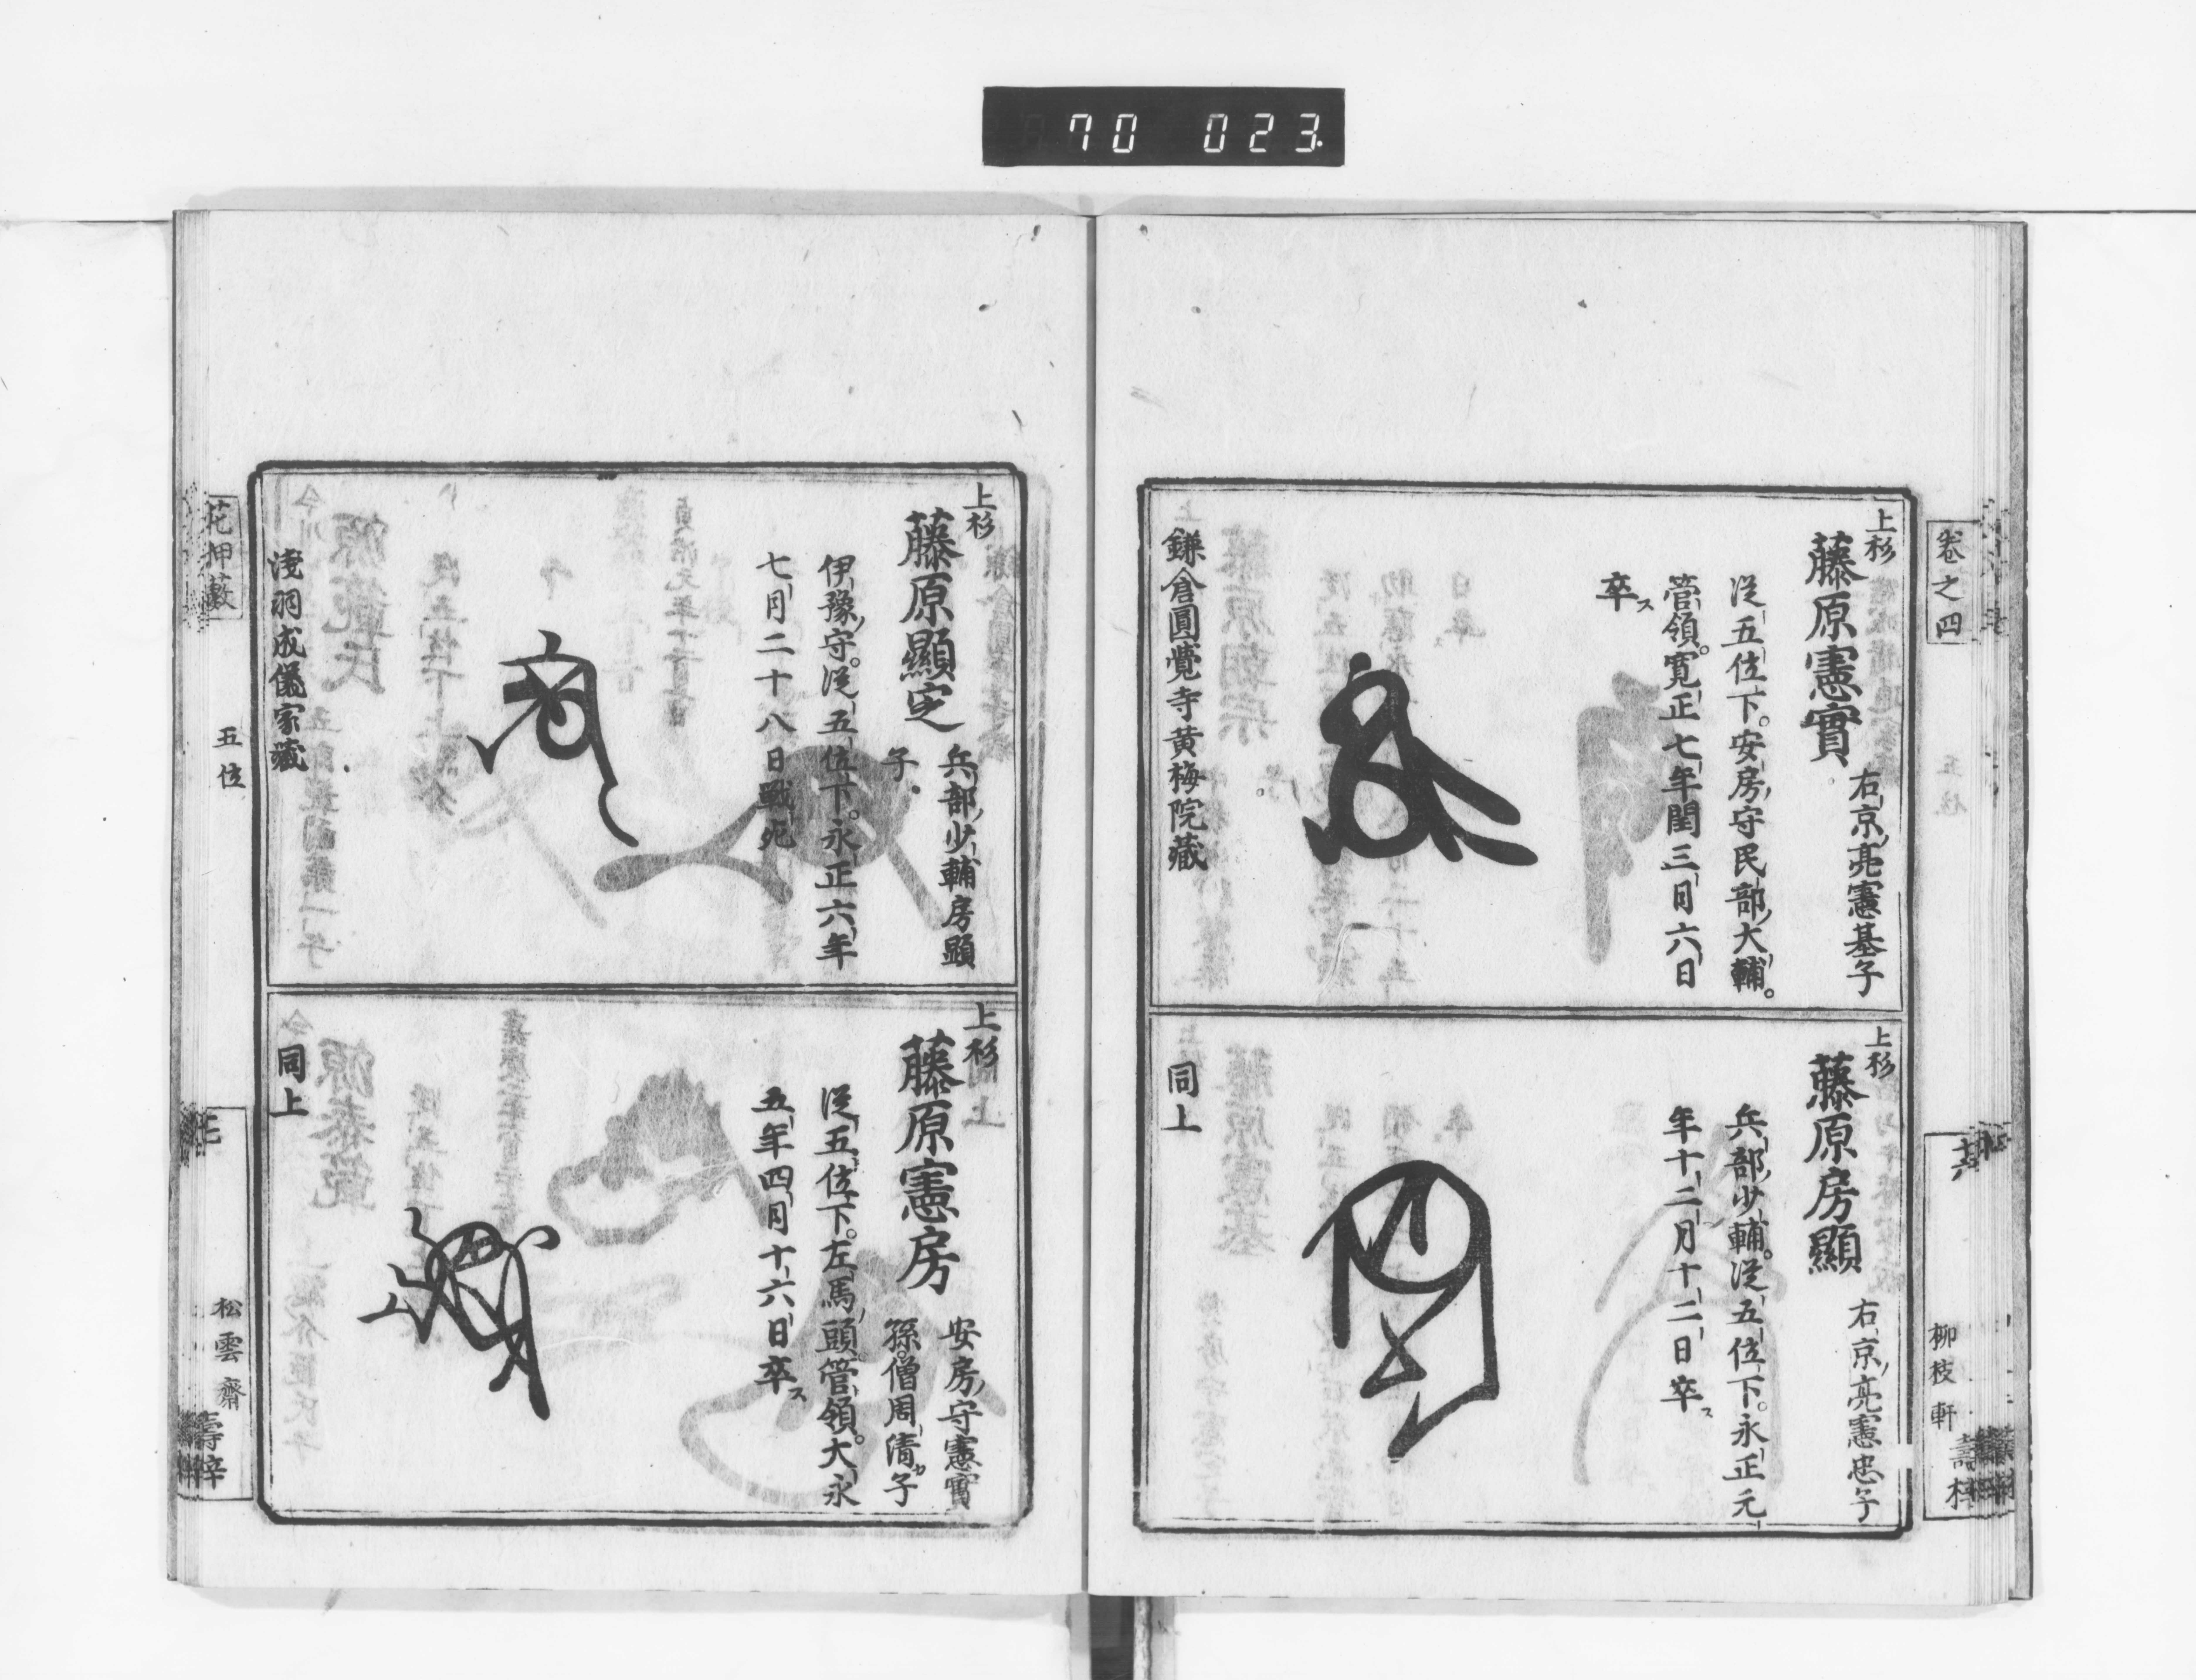 70 023.
卷之四
十六
柳枝軒
上杉
藤原憲實
右京亮憲基子
從五位下。安房守民部大輔。
管領。寛正七年閏三月六日
卒ス
鎌倉圓覺寺黄梅院藏
上杉
藤原房顯
右京亮憲忠子
兵部少輔。從五位下。永正元
年十二月十二日卒ス
同上
上杉
藤原顯定
兵部少輔房顯
子
伊豫守。從五位下。永正六年
七月二十八日戰死
淺羽成儀家藏
上杉
藤原憲房
安房守憲實
孫。僧周清カ子
從五位下。左馬頭管領。大永
五年四月十六日卒ス
同上
花押藪
五位
松雲齋
壽梓